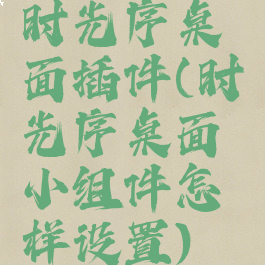 时光序桌
面插件(时
光序桌面
小组件怎
样设置)